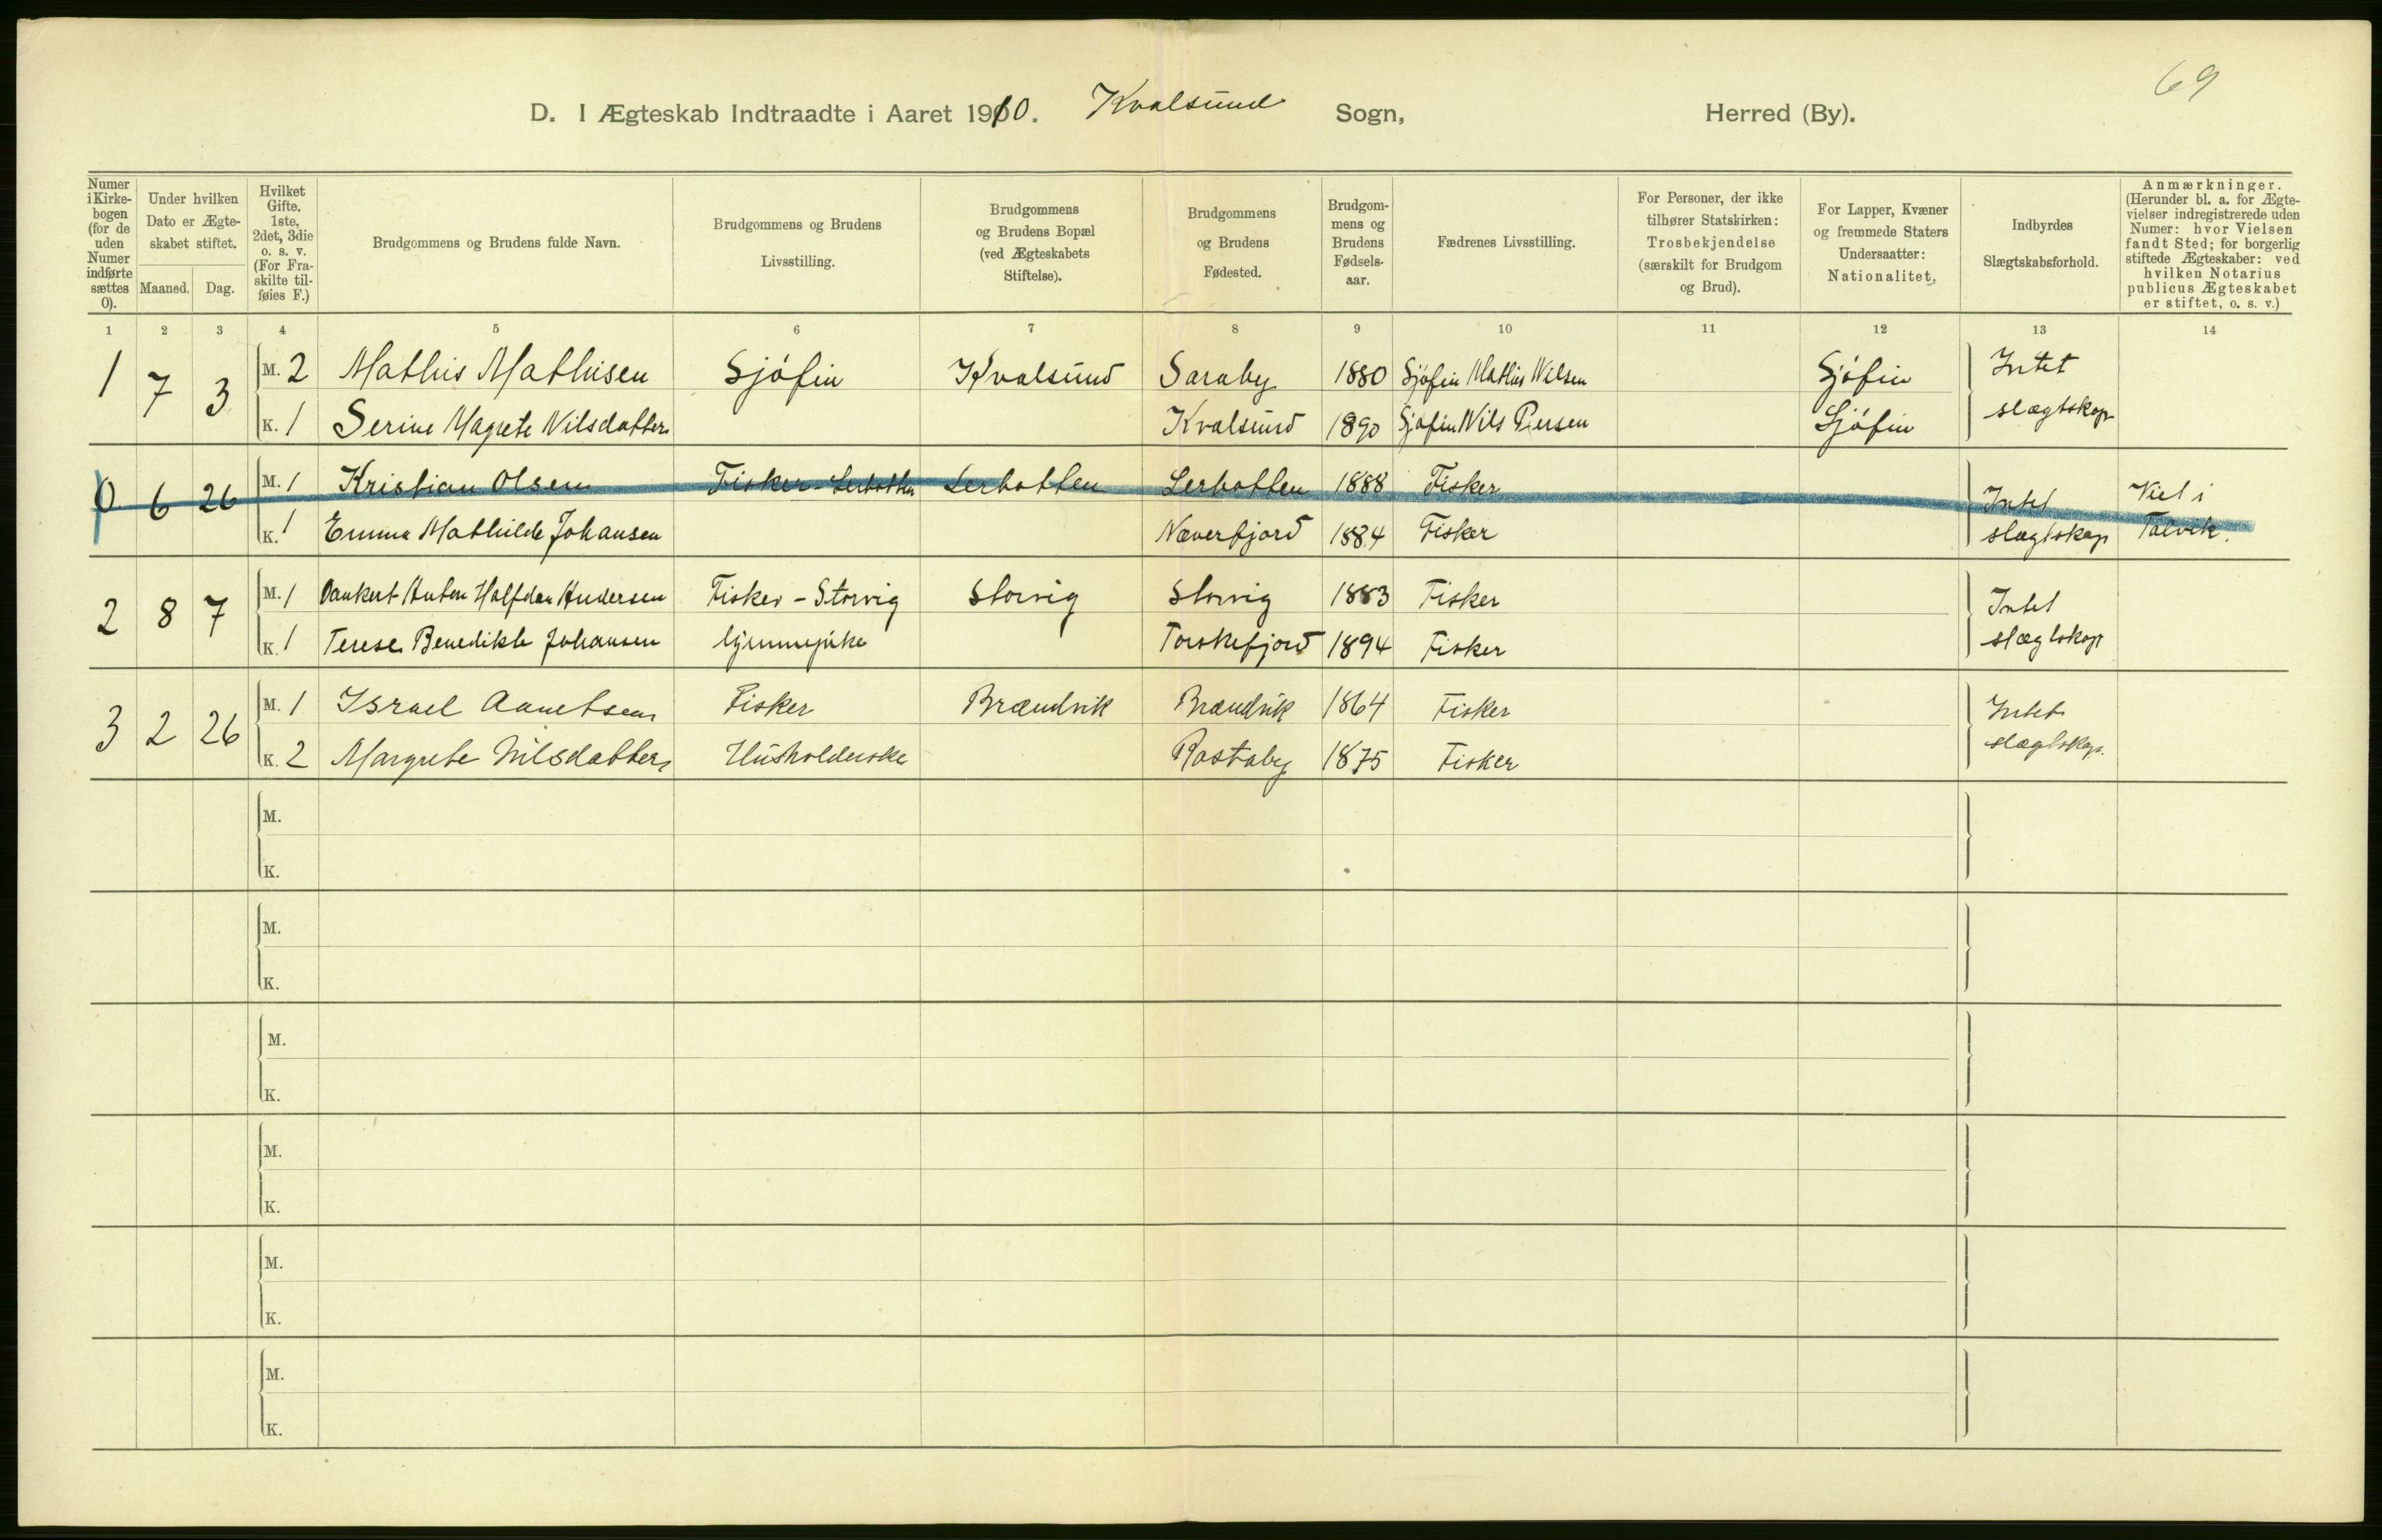 69
D. I Ægteskab Indtraadte i Aaret 1910. Kvalsund Sogn, Herred (By).
Numer i Kirke-bogen (for de uden Numer indførte sættes 0).
Under hvilken Dato er Ægte-skabet stiftet.
Maaned. Dag.
Hvilket Gifte. 1ste, 2det, 3die o. s. v. (For Fra-skilte til-føies F.)
Brudgommens og Brudens fulde Navn.
Brudgommens og Brudens Livsstilling.
Brudgommens og Brudens Bopæl (ved Ægteskabets Stiftelse).
Brudgommens og Brudens Fødested.
Brudgom-mens og Brudens Fødsels-aar.
Fædrenes Livsstilling.
For Personer, der ikke tilhører Statskirken: Trosbekjendelse (særskilt for Brudgom og Brud).
For Lapper, Kvæner og fremmede Staters Undersaatter: Nationalitet.
Indbyrdes Slægtskabsforhold.
Anmærkninger. (Herunder bl. a. for Ægte-vielser indregistrerede uden Numer: hvor Vielsen fandt Sted; for borgerlig stiftede Ægteskaber: ved hvilken Notarius publicus Ægteskabet er stiftet, o. s. v.)
1 2 3 4 5 6 7 8 9 10 11 12 13 14
1 7 3 M. 2 Mathis Mathisen Sjøfin Kvalsund Saraby 1880 Sjøfin Mathis Nilsen Sjøfin Intet
K. 1 Serine Magrete Nilsdatter Kvalsund 1890 Sjøfin Nils Persen Sjøfin slægtskap
0 6 26 M. 1 Kristian Olsen Fisker - Lerbotten Lerbotten Lerbotten 1888 Fisker Intet Viet i
K. 1 Emma Mathilde Johansen Næverfjord 1884 Fisker slægtskap Talvik.
2 8 7 M. 1 Dankert Anton Halfdan Andersen Fisker - Storvig Storvig Storvig 1883 Fisker Intet
K. 1 Terese Benedikte Johansen hjemmepike Torskefjord 1894 Fisker slægtskap
3 2 26 M. 1 Israel Fisker Brændvik Brændvik 1864 Fisker Intet
K. 2 Margrete Nilsdatter Husholderske Rastaby 1875 Fisker slægtskap.
M.
K.
M.
K.
M.
K.
M.
K.
M.
K.
M.
K.